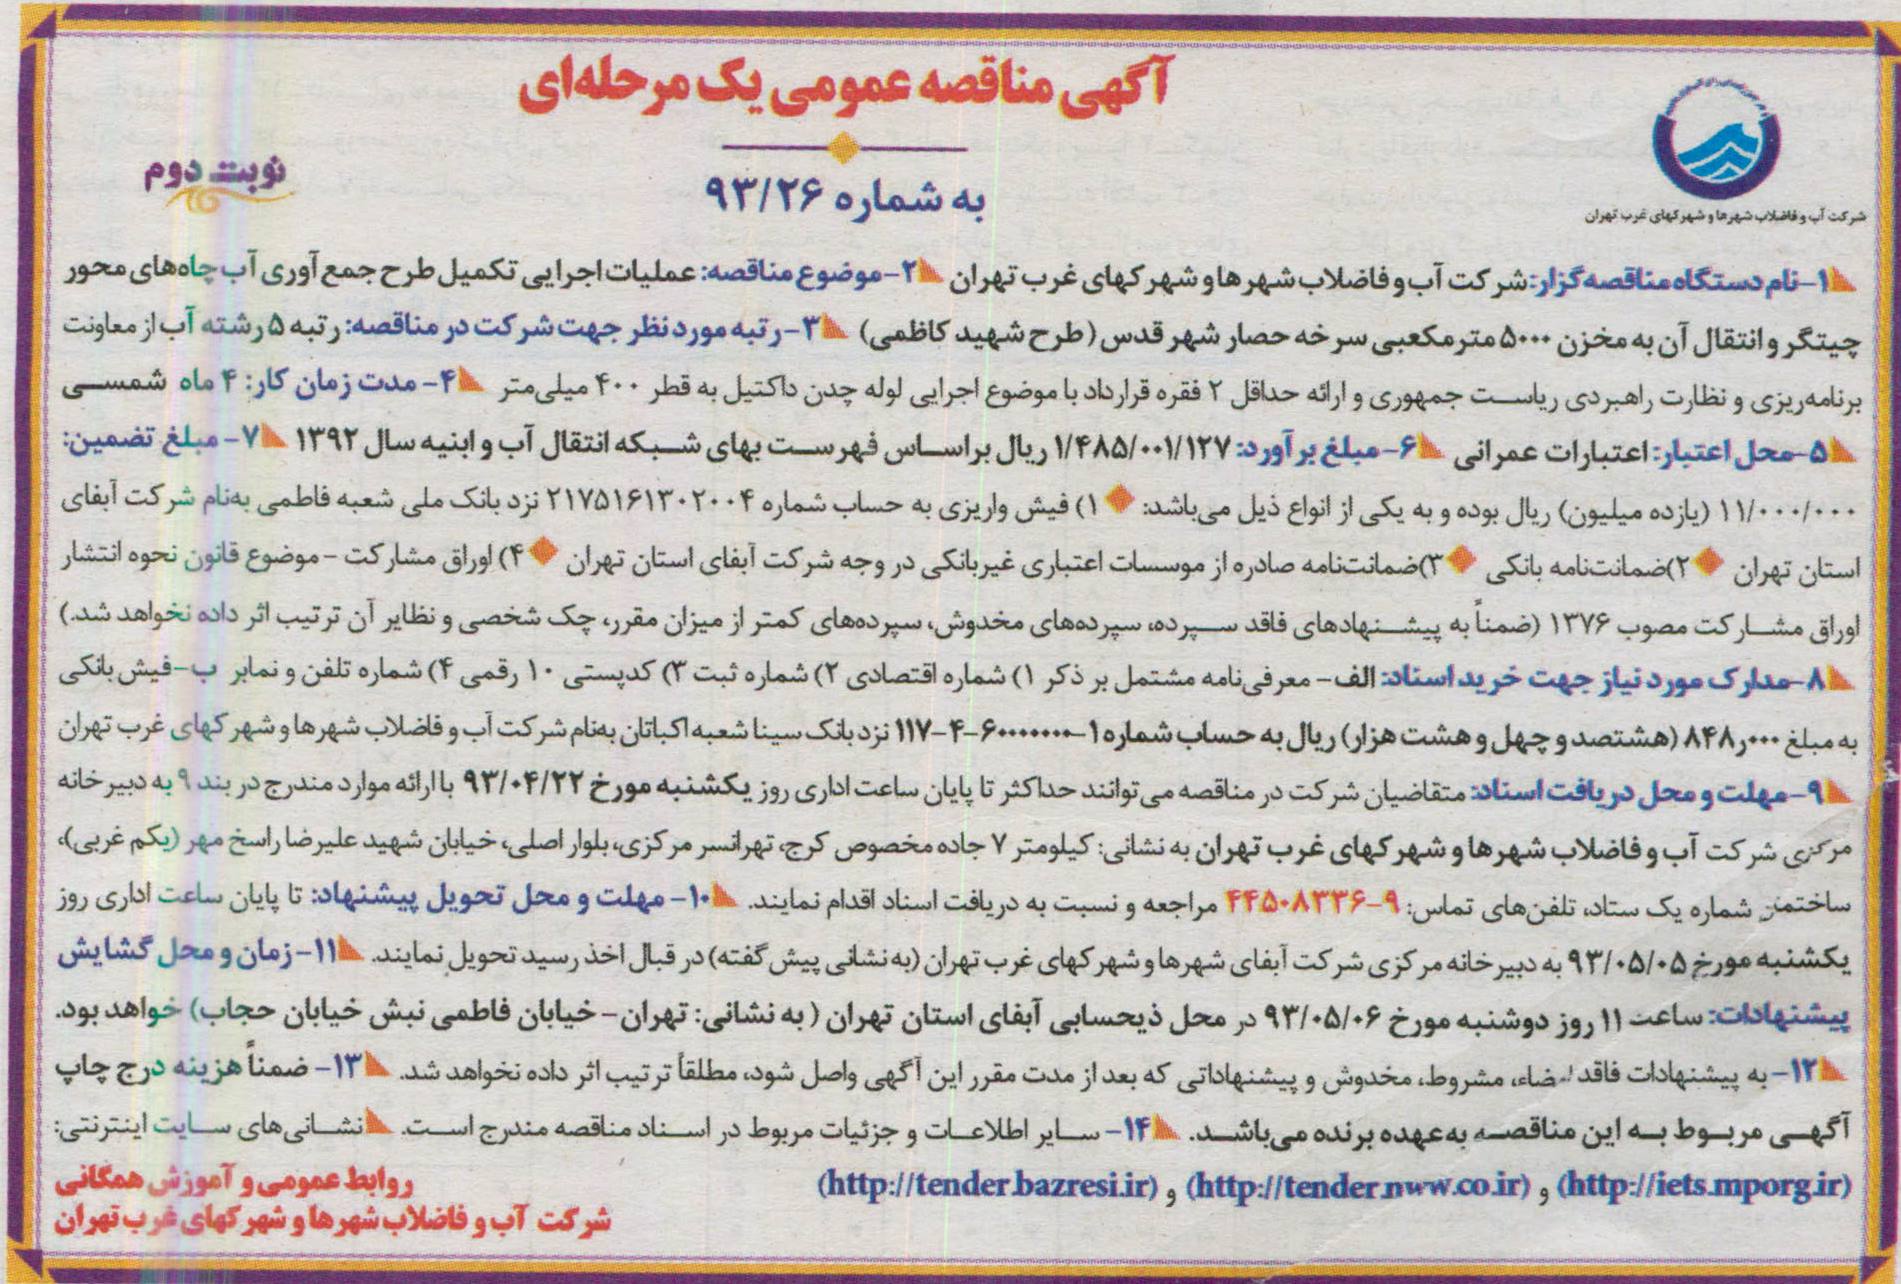 آگهی مناقصه عمومی یک مرحله‌ای
نوبت دوم
به شماره ۹۳/۲۶
شرکت آب و فاضلاب شهرها و شهرکهای غرب تهران
۱-نام دستگاه مناقصه‌گزار: شرکت آب و فاضلاب شهرها و شهرکهای غرب تهران ۲-موضوع مناقصه: عملیات اجرایی تکمیل طرح جمع آوری آب چاه‌های محور
چیتگر و انتقال آن به مخزن ۵۰۰۰ مترمکعبی سرخه حصار شهر قدس (طرح شهید کاظمی) ۳-رتبه مورد نظر جهت شرکت در مناقصه: رتبه ۵ رشته آب از معاونت
برنامه‌ریزی و نظارت راهبردی ریاست جمهوری و ارائه حداقل ۲ فقره قرارداد با موضوع اجرایی لوله چدن داکتیل به قطر ۴۰۰ میلی‌متر ۴- مدت زمان کار: ۴ ماه شمسی
۵-محل اعتبار: اعتبارات عمرانی ۶-مبلغ برآورد: ۱/۴۸۵/۰۰۱/۱۲۷ ریال براساس فهرست بهای شبکه انتقال آب و ابنیه سال ۱۳۹۲ ۷- مبلغ تضمین:
۱۱/۰۰۰/۰۰۰ (یازده میلیون) ریال بوده و به یکی از انواع ذیل می‌باشد: ۱) فیش واریزی به حساب شماره ۲۱۷۵۱۶۱۳۰۲۰۰۴ نزد بانک ملی شعبه فاطمی به‌نام شرکت آبفای
استان تهران ۲)ضمانت‌نامه بانکی ۳)ضمانت‌نامه صادره از موسسات اعتباری غیربانکی در وجه شرکت آبفای استان تهران ۴) اوراق مشارکت - موضوع قانون نحوه انتشار
اوراق مشارکت مصوب ۱۳۷۶ (ضمناً به پیشنهادهای فاقد سپرده، سپرده‌های مخدوش، سپرده‌های کمتر از میزان مقرر، چک شخصی و نظایر آن ترتیب اثر داده نخواهد شد.)
۸-مدارک مورد نیاز جهت خرید اسناد: الف- معرفی‌نامه مشتمل بر ذکر ۱) شماره اقتصادی ۲) شماره ثبت ۳) کدپستی ۱۰ رقمی ۴) شماره تلفن و نمابر ب-فیش بانکی
به مبلغ ۸۴۸٫۰۰۰ (هشتصد و چهل و هشت هزار) ریال به حساب شماره نزد بانک سینا شعبه اکباتان به‌نام شرکت آب و فاضلاب شهرها و شهرکهای غرب تهران
۹- مهلت و محل دریافت اسناد: متقاضیان شرکت در مناقصه می‌توانند حداکثر تا پایان ساعت اداری روز یکشنبه مورخ ۹۳/۰۴/۲۲ با ارائه موارد مندرج در بند ۹ به دبیرخانه
مرکزی شرکت آب و فاضلاب شهرها و شهرکهای غرب تهران به نشانی: کیلومتر ۷ جاده مخصوص کرج، تهرانسر مرکزی، بلوار اصلی، خیابان شهید علیرضا راسخ مهر (یکم غربی)،
ساختمان شماره یک ستاد، تلفن‌های تماس: ۹-۴۴۵۰۸۳۳۶ مراجعه و نسبت به دریافت اسناد اقدام نمایند. ۱۰- مهلت و محل تحویل پیشنهاد: تا پایان ساعت اداری روز
یکشنبه مورخ ۹۳/۰۵/۰۵ به دبیرخانه مرکزی شرکت آبفای شهرها و شهرکهای غرب تهران (به نشانی پیش گفته) در قبال اخذ رسید تحویل نمایند. ۱۱-زمان و محل گشایش
پیشنهادات: ساعت ۱۱ روز دوشنبه مورخ ۹۳/۰۵/۰۶ در محل ذیحسابی آبفای استان تهران (به نشانی: تهران - خیابان فاطمی نبش خیابان حجاب) خواهد بود.
۱۲- به پیشنهادات فاقد امضاء، مشروط، مخدوش و پیشنهاداتی که بعد از مدت مقرر این آگهی واصل شود، مطلقاً ترتیب اثر داده نخواهد شد. ۱۳- ضمناً هزینه درج چاپ
آگهی مربوط به این مناقصه به‌عهده برنده می‌باشد. ۱۴- سایر اطلاعات و جزئیات مربوط در اسناد مناقصه مندرج است. نشانی‌های سایت اینترنتی:
(http://iets.mporg.ir) و (http://tender.nww.co.ir) و (http://tender.bazresi.ir)
روابط عمومی و آموزش همگانی
شرکت آب و فاضلاب شهرها و شهرکهای غرب تهران